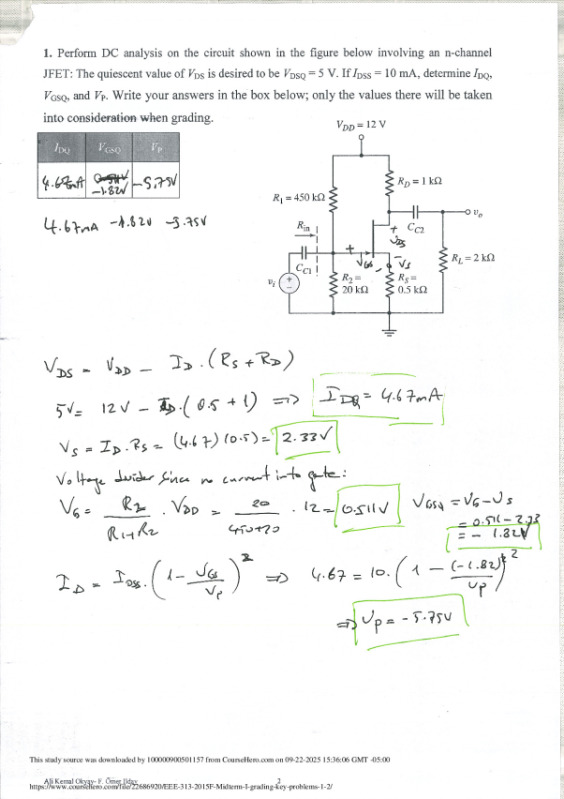 1. Perform DC analysis on the circuit shown in the figure below involving an n-channel
JFET: The quiescent value of V_DS is desired to be V_DSQ = 5 V. If I_DSS = 10 mA, determine I_DQ,
V_GSQ, and V_P. Write your answers in the box below; only the values there will be taken
into consideration when grading.
I_DQ V_GSQ V_P
4.67mA -1.82V -5.75V
4.67mA -1.82V -5.75V
V_DD = 12 V
R_D = 1 kΩ
R_1 = 450 kΩ
R_in
C_C2
v_o
+ V_DS -
+ V_GS -
V_S
C_C1
v_i
R_2 =
20 kΩ
R_S =
0.5 kΩ
R_L = 2 kΩ
V_DS = V_DD - I_D . (R_S + R_D)
5V = 12V - I_D . (0.5 + 1) => I_DQ = 4.67mA
V_S = I_D . R_S = (4.67)(0.5) = 2.33V
Voltage divider since no current into gate:
V_G = R_2 / (R_1+R_2) . V_DD = 20 / (450+20) . 12 = 0.511V
V_GSQ = V_G - V_S
= 0.511 - 2.33
= - 1.82V
I_D = I_DSS . (1 - V_GS / V_P)^2 => 4.67 = 10 . (1 - (-1.82) / V_P)^2
=> V_P = - 5.75V
This study source was downloaded by 100000900501157 from CourseHero.com on 09-22-2025 15:36:06 GMT -05:00
2
Ali Kemal Okyay- F. Ömer Ilday
https://www.coursehero.com/file/22686920/EEE-313-2015F-Midterm-I-grading-key-problems-1-2/